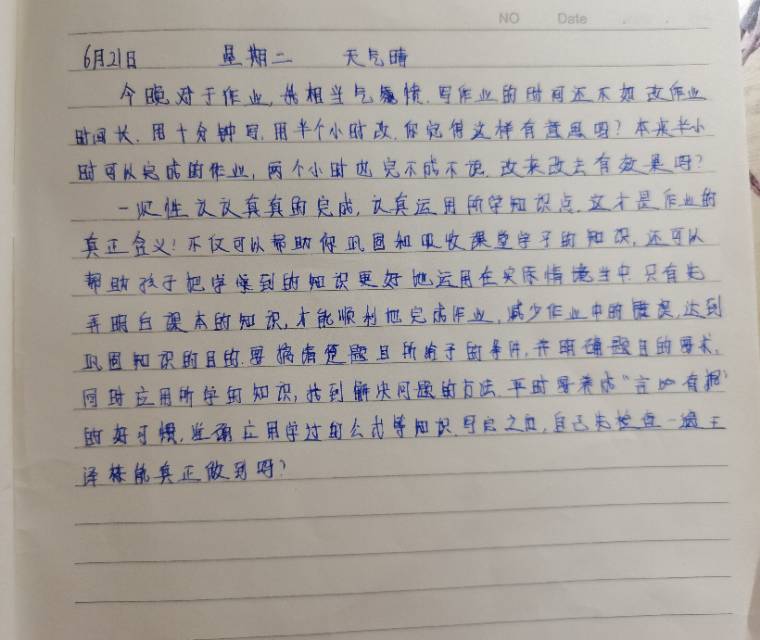 NO Date
6月21日 星期二 天气晴
今晚对于作业,我相当气愤,写作业的时间还不如改作业
时间长,用十分钟写,用半个小时改,你觉得这样有意思吗?本来半小
时可以完成的作业,两个小时也完不成不说,改来改去有效果吗?
一次性认认真真的完成,认真运用所学知识点,这才是作业的
真正含义!不仅可以帮助你巩固和吸收课堂学子的知识,还可以
帮助孩子把学习到的知识更好地运用在实际情境当中,只有先
弄明白课本的知识,才能顺利地完成作业,减少作业中的错误,达到
巩固知识的目的,要搞清楚题目所给予的条件,并明确题目的要求,
同时应用所学的知识,找到解决问题的方法,平时要养成"言必有据"
的好习惯,准确应用学过的公式等知识,写完之后,自己先检查一遍王
泽栋能真正做到吗?